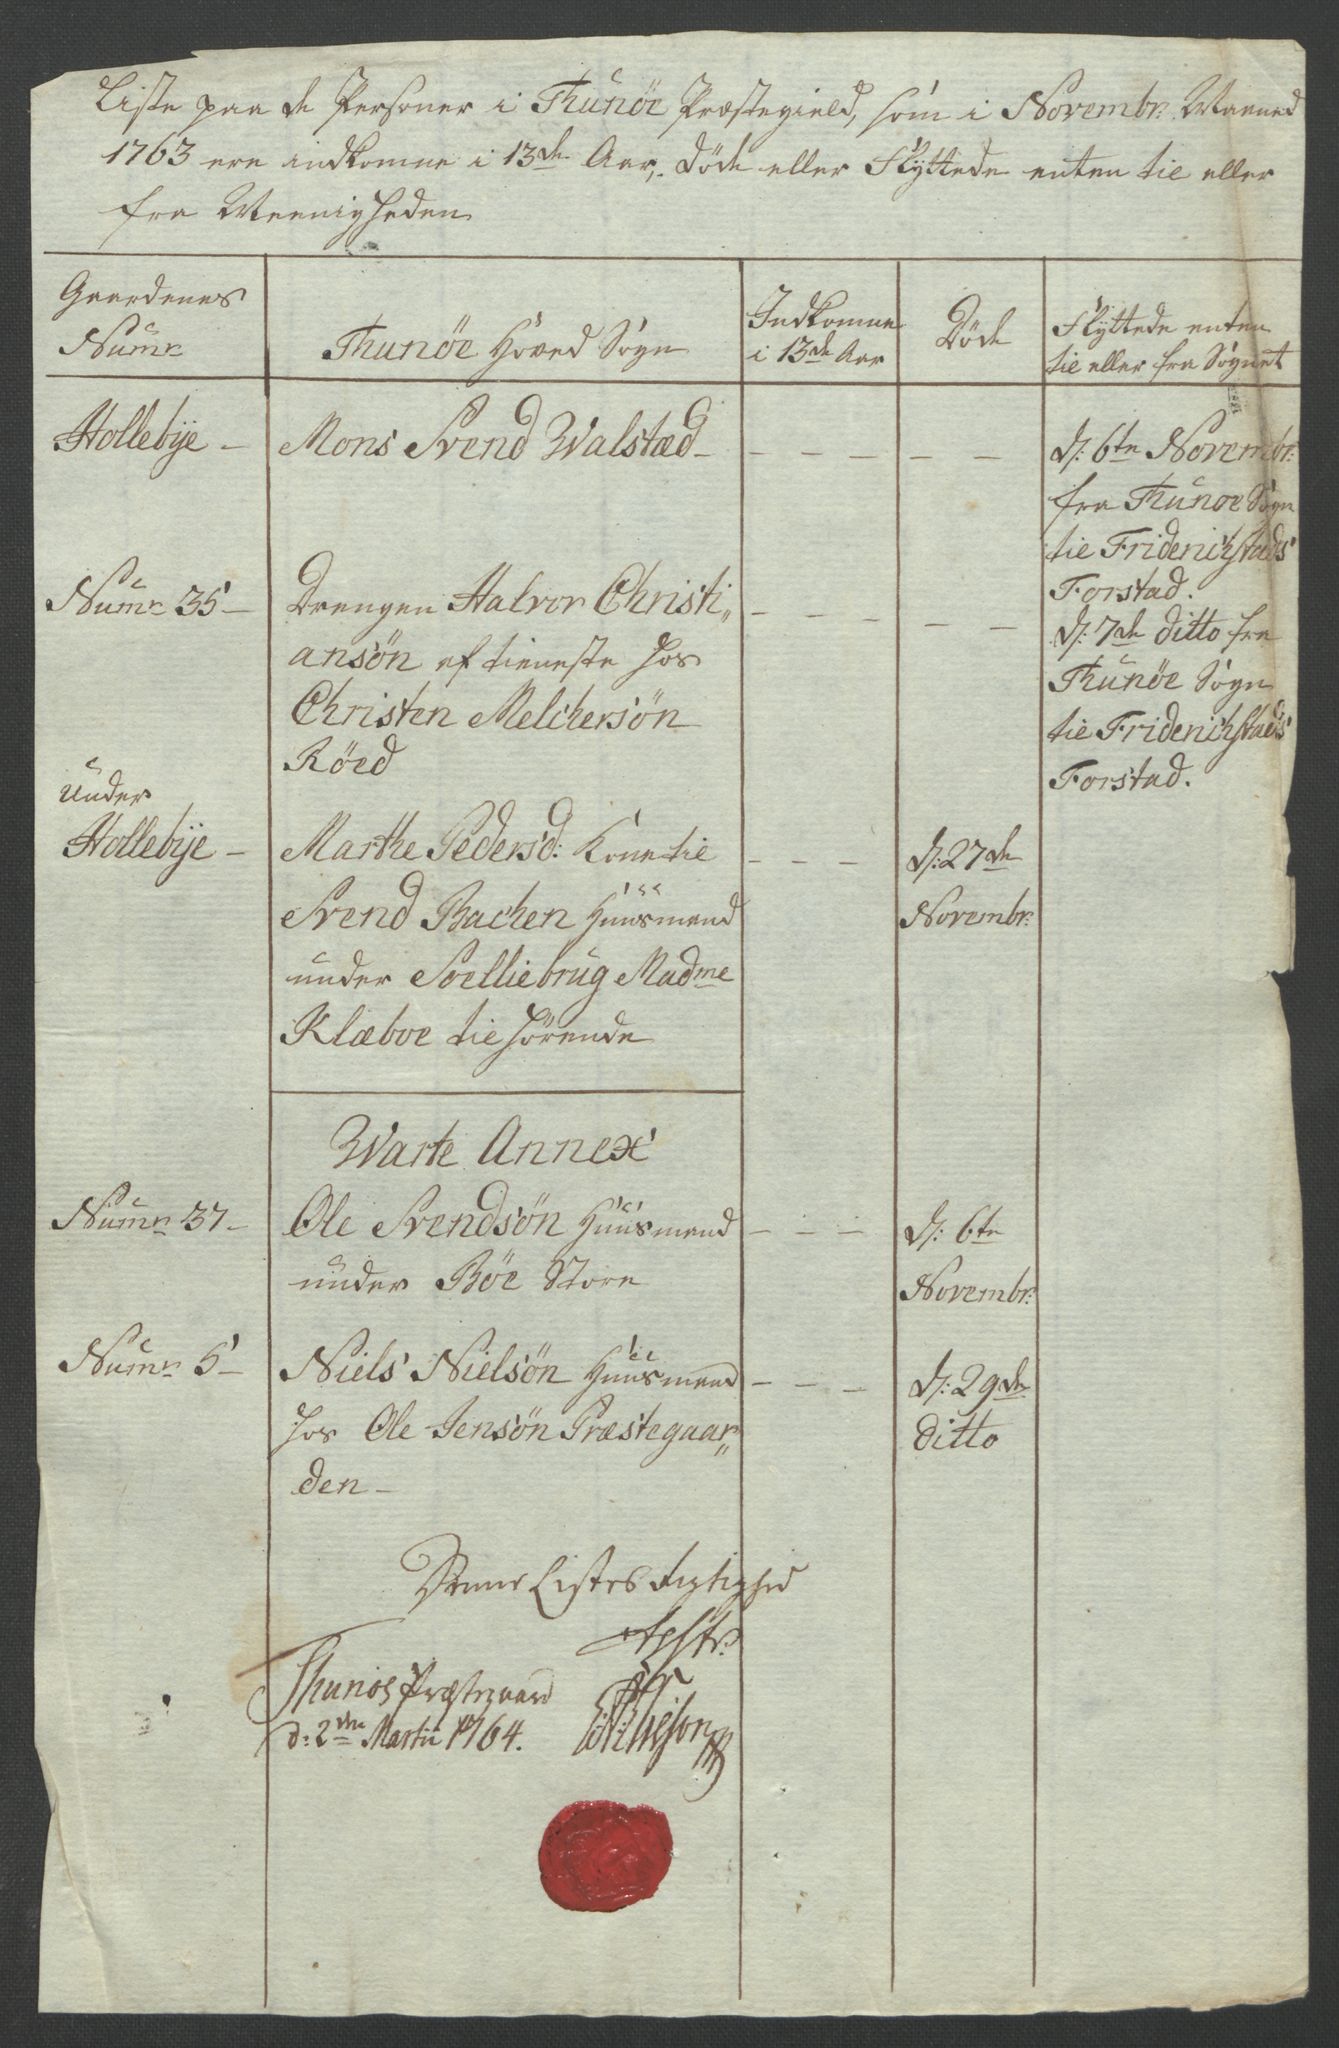 Liste paa de Personer i Thunöe Præstegield, som i Novembr: Maaned
1763 ere indkomne i 13de Aar, döde eller Flyttede enten til eller
fra Meenigheden
Gaardenes
Numr
Thunöe Hoved Sogn
Indkomne
i 13de Aar
Döde
Flyttede enten
til eller fra Sognet
Hollebÿe -
Mons Svend Walstæd -
d: 6te Novembr:
fra Thunöe Sogn
til Friderichstads
Forstad.
Numr 35 -
Drengen Halvor Christi„
ansön af tieneste hos
Christen Melchersön
Röed
d: 7de ditto fra
Thunöe Sogn
til Friderichstads
Forstad.
Under
Hollebÿe -
Marthe Pedersd: Kone til
Svend Bachen Huusmand
under Soelliebrug Madme
Klæboe tilhörende
d: 27de
Novembr:
Warte Annex
Numr 37 -
Ole Svendsön Huusmand
under Böe Store
d: 6te
Novembr:
Numr 5 -
Niels Nielsön Huusmand
hos Ole Jensön Præstegaar„
den -
d: 29de
ditto
Denne Listes Rigtighed
Thunöe Præstegaard
d: 2den Martii 1764.